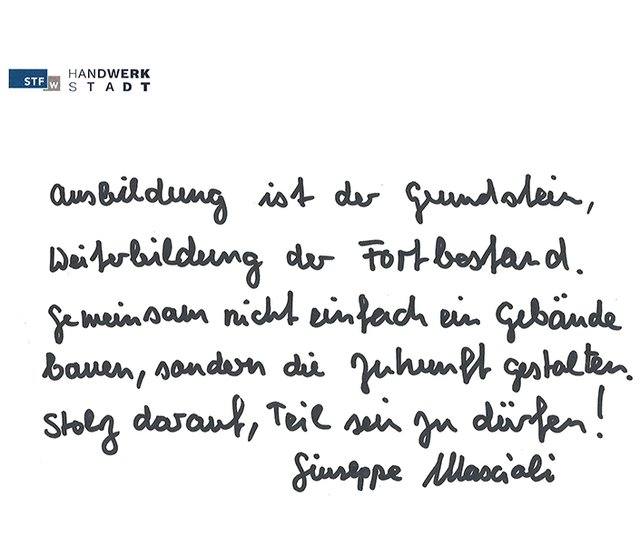 STF W HANDWERK
STADT
Ausbildung ist der Grundstein,
Weiterbildung der Fortbestand.
Gemeinsam nicht einfach ein Gebäude
bauen, sondern die Zukunft gestalten.
Stolz darauf, Teil sein zu dürfen!
Giuseppe Masciali